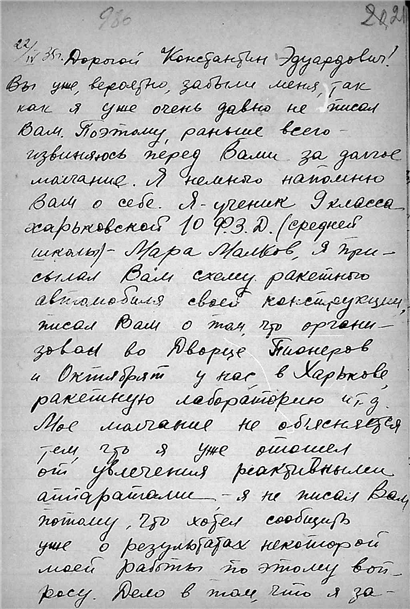 980
20,21
22/IV 35г. Дорогой Константин Эдуардович!
Вы уже, вероятно, забыли меня, так
как я уже очень давно не писал
Вам. Поэтому, раньше всего –
извиняюсь перед Вами за долгое
молчание. Я немного напомню
Вам о себе. Я – ученик 9 класса
харьковской 10 Ф.З.Д. (средней
школы) – Мара Малков, Я при-
сылал Вам схему ракетного
автомобиля своей конструкции,
писал Вам о том, что органи-
зован во Дворце Пионеров
и Октябрят у нас в Харькове,
ракетную лабораторию и т.д.
Мое молчание не объясняется
тем, что я уже отошел
от увлечения реактивными
аппаратами – я не писал Вам
потому, что хотел сообщить
уже о результатах некоторой
моей работы по этому воп-
росу. Дело в том, что я за-